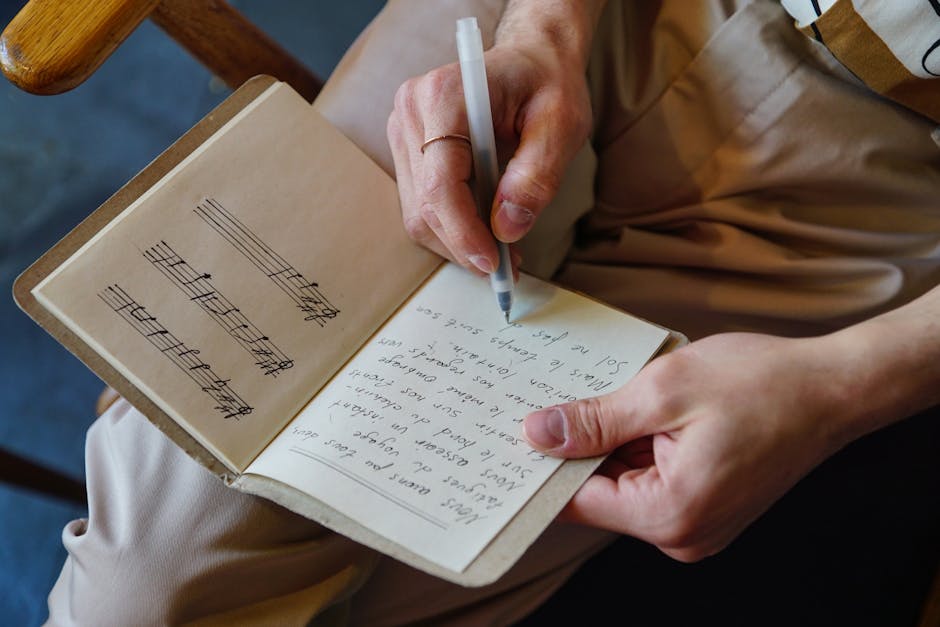 Nous avons pu tous deux,
fatigues du voyage
Nous asseoir un instant
Sur le bord du chemin-
sentir sur nos fronts
le même ombrage
nos regards vers
horizon lointain.
Mais le temps suit son
ne pas